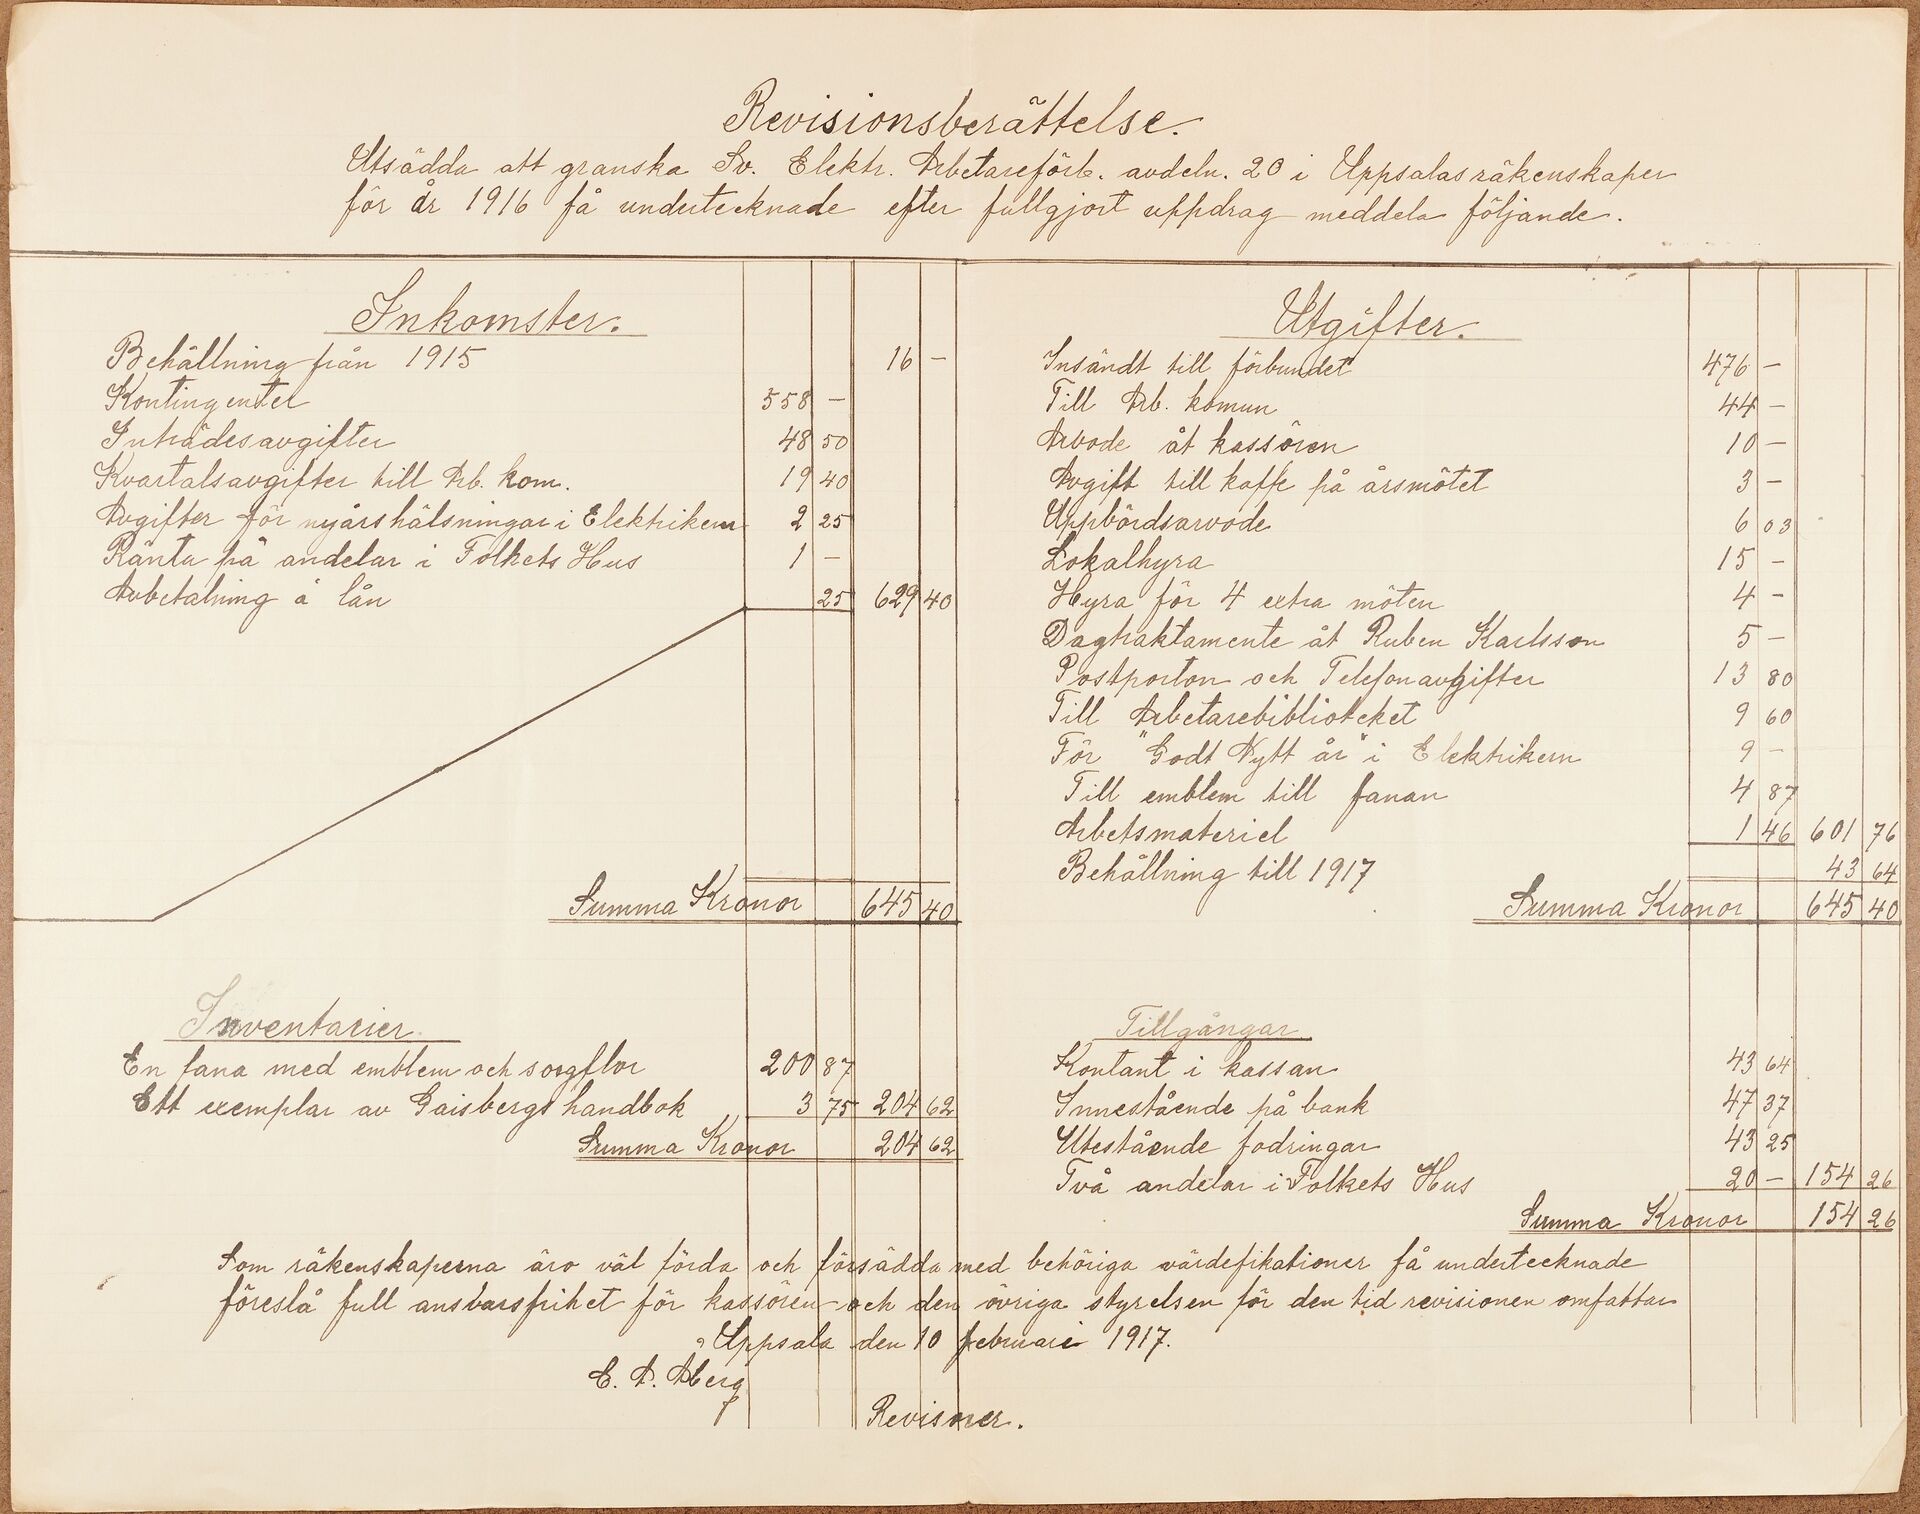 Revisionsberättelse.
Utsädda att granska Sv. Elektr. Arbetareförb. avdeln. 20 i Uppsalas räkenskaper
för år 1916 få undertecknade efter fullgjort uppdrag meddela följande.
Inkomster.
Behållning från 1915 16 –
Kontingenter 558 –
Inträdesavgifter 48 50
Kvartalsavgifter till Arb. kom. 19 40
Avgifter för nyårshälsningar i Elektrikern 2 25
Ränta på andelar i Folkets Hus 1 –
Avbetalning å lån 25 629 40
Summa Kronor 645 40
Utgifter.
Insändt till förbundet 476 –
Till Arb. komun 44 –
Arvode åt kassören 10 –
Avgift till kaffe på årsmötet 3 –
Uppbördsarvode 6 03
Lokalhyra 15 –
Hyra för 4 extra möten 4 –
Dagtraktamente åt Ruben Karlsson 5 –
Postporton och Telefonavgifter 13 80
Till Arbetarebiblioteket 9 60
För "Godt Nytt år" i Elektrikern 9 –
Till emblem till fanan 4 87
Arbetsmateriel 1 46 601 76
Behållning till 1917 43 64
Summa Kronor 645 40
Inventarier
En fana med emblem och sorgflor 200 87
Ett exemplar av Gaisbergs handbok 3 75 204 62
Summa Kronor 204 62
Tillgångar
Kontant i kassan 43 64
Innestående på bank 47 37
Utestående fodringar 43 25
Två andelar i Folkets Hus 20 – 154 26
Summa Kronor 154 26
Som räkenskaperna äro väl förda och försädda med behöriga värdefikationer få undertecknade
föreslå full ansvarsfrihet för kassören och den övriga styrelsen för den tid revisionen omfattar
Uppsala den 10 februari 1917.
E. A. Åberg
Revisorer.